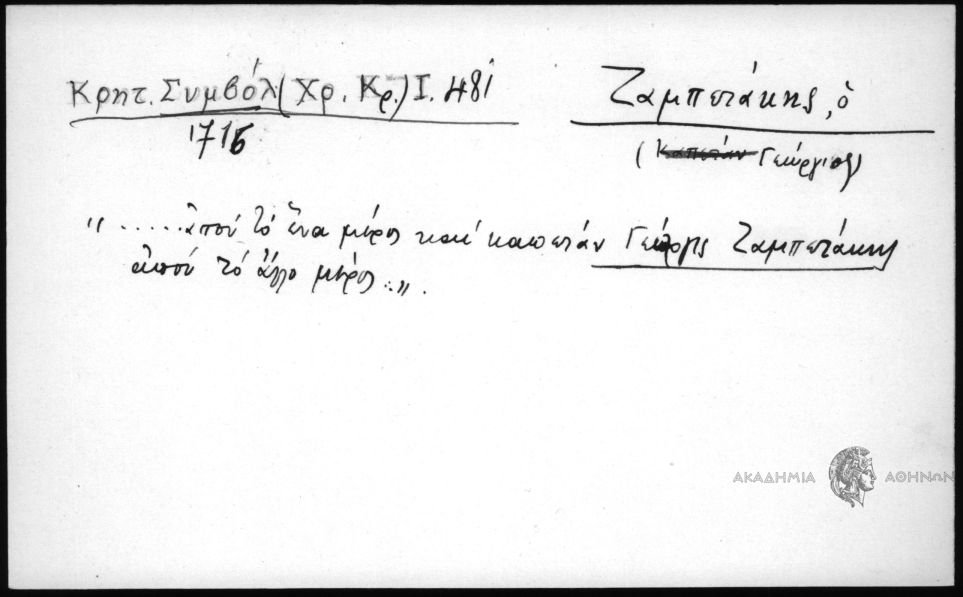 Κρητ. Συμβόλ (Χρ. Κρ.) Ι. 481
1715
Ζαμπετάκης, ὁ
(Καπετάν Γεώργιος)
"......ἀπού τό ἕνα μέρος καί καπετάν Γεώργις Ζαμπετάκης
ἀπού τό ἄλλο μέρος..".
ΑΚΑΔΗΜΙΑ ΑΘΗΝΩΝ